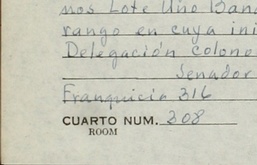 nos Lote Uno Ban
rango en cuya ini
Delegación Colono
Senador
Franquicia 316
CUARTO NUM. 308
ROOM